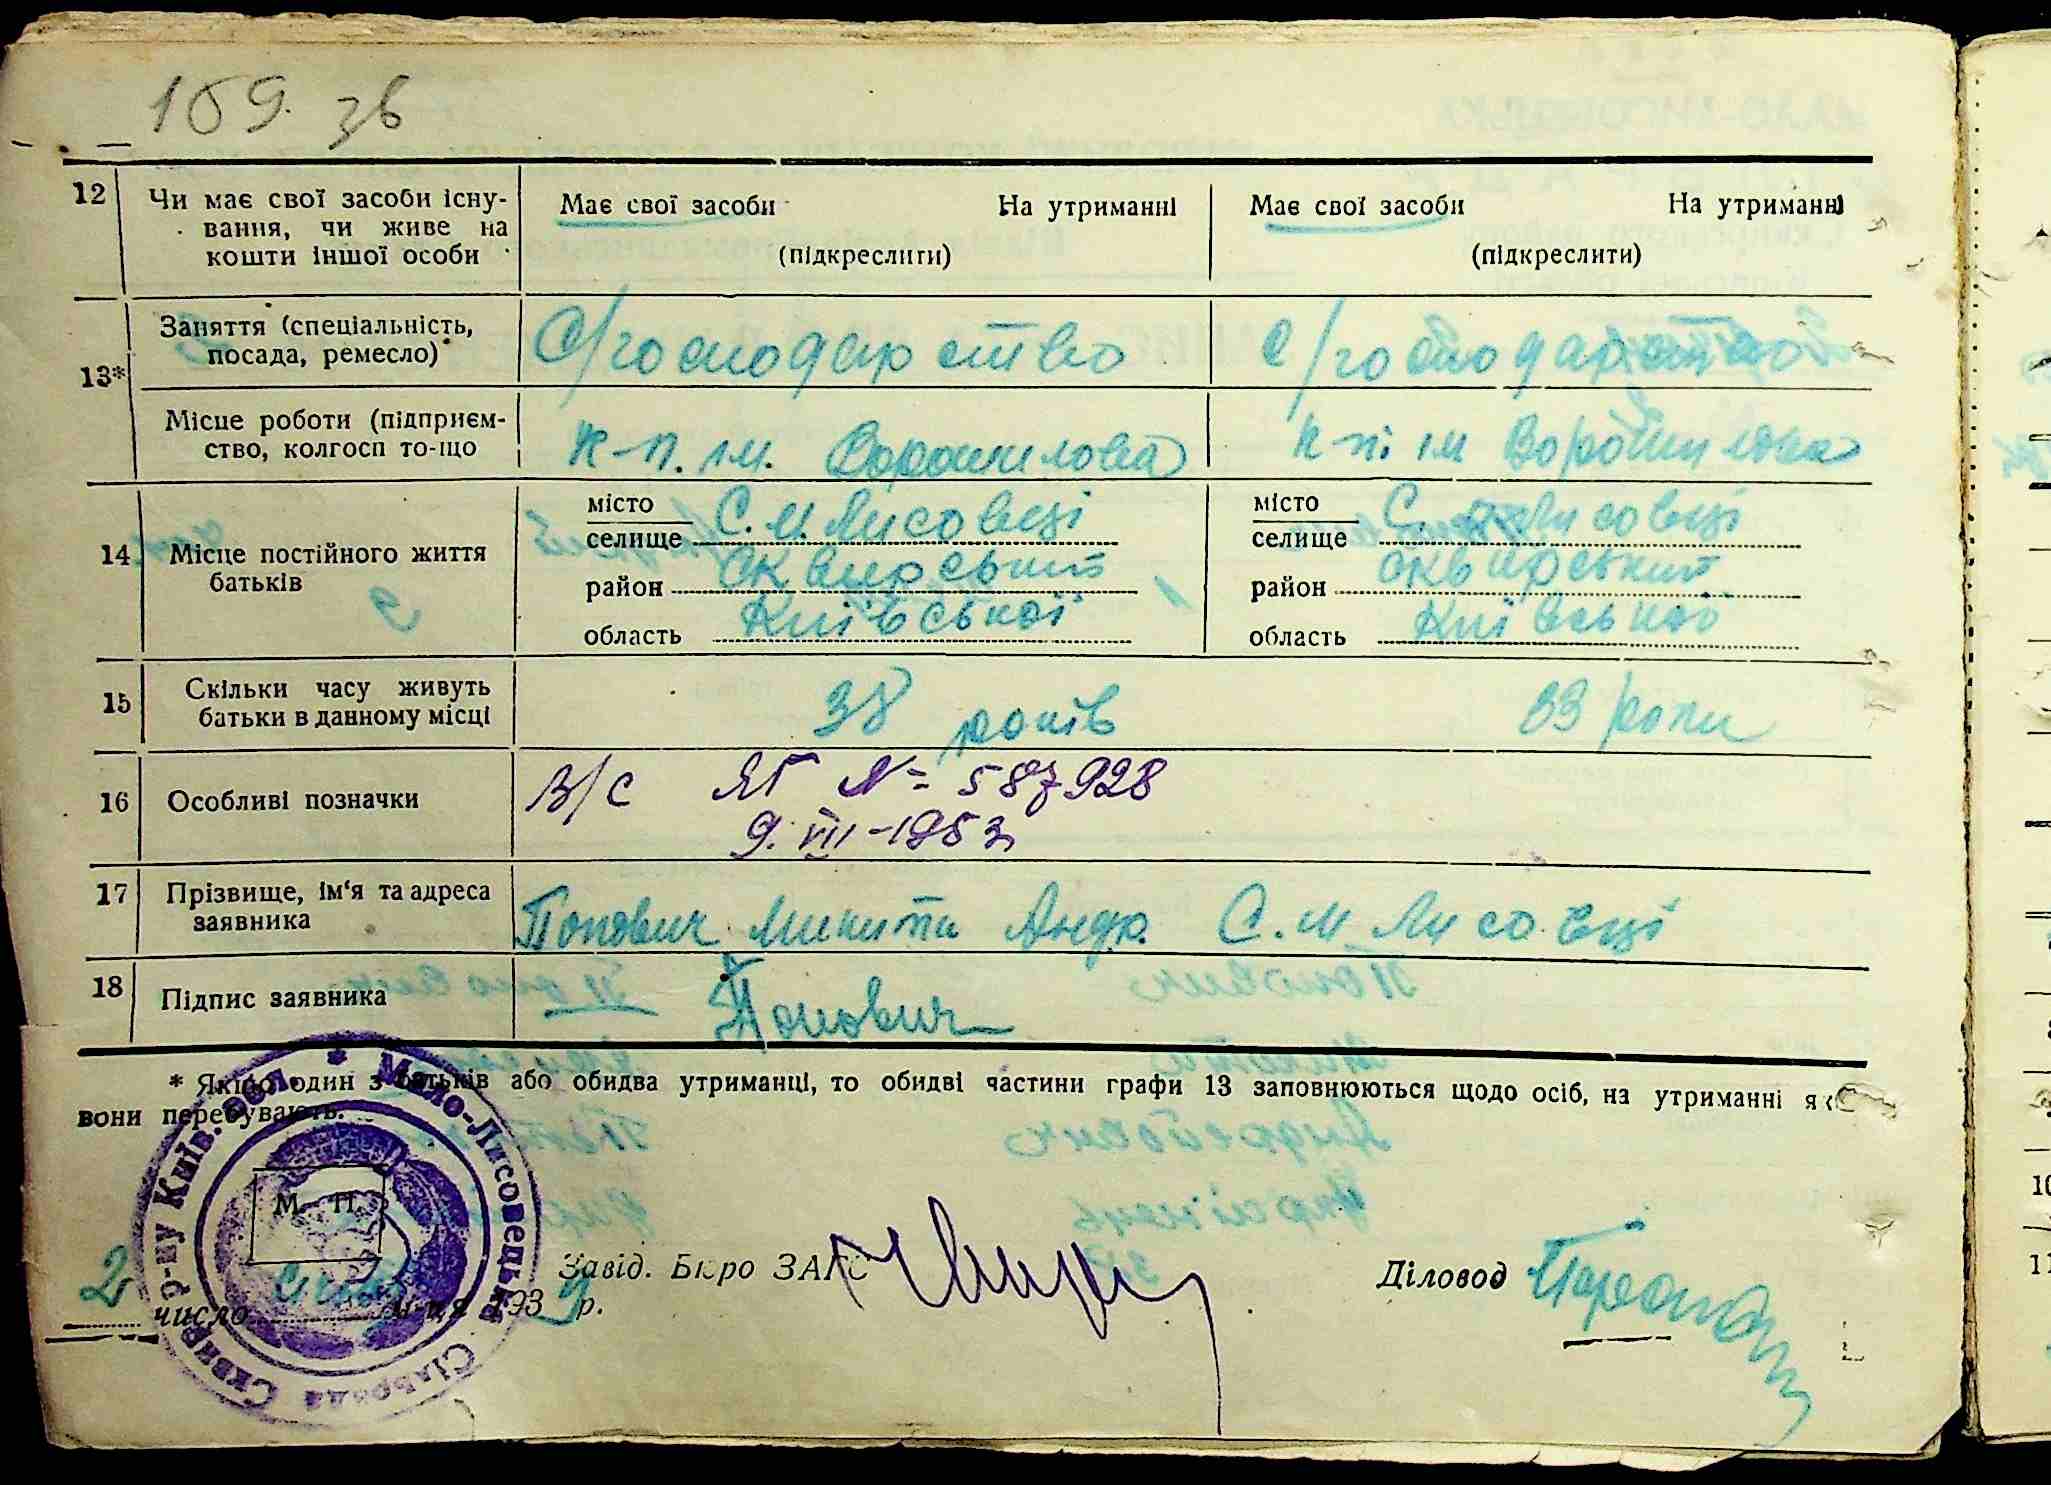 169. зв
12 Чи має свої засоби існу- Має свої засоби На утриманні Має свої засоби На утриманні
вання, чи живе на
кошти іншої особи (підкреслити) (підкреслити)
13* Заняття (спеціальність,
посада, ремесло) С/господарство с/господарство
Місце роботи (підприєм-
ство, колгосп то-що К-п. ім. Ворошилова К-п. ім Ворошилова
14 Місце постійного життя
батьків
місто
селище С. М Лисовеці
район Сквирський
область Київської
місто
селище С. Лисовеці
район Сквирський
область Київської
15 Скільки часу живуть
батьки в данному місці 38 років 33 роки
16 Особливі позначки В/с ЯГ № 587928
9. VII-1953
17 Прізвище, ім'я та адреса
заявника Попович Микита Андр. С. М Лисовеці
18 Підпис заявника Попович
* Якщо один з батьків або обидва утриманці, то обидві частини графи 13 заповнюються щодо осіб, на утриманні як
вони перебувають.
* Мало-Лисовецька Сільрада Сквир. р-ну Київ. обл.
М. П.
Завід. Бюро ЗАГС
Діловод
2 число січня м-ця 1939 р.
10
11